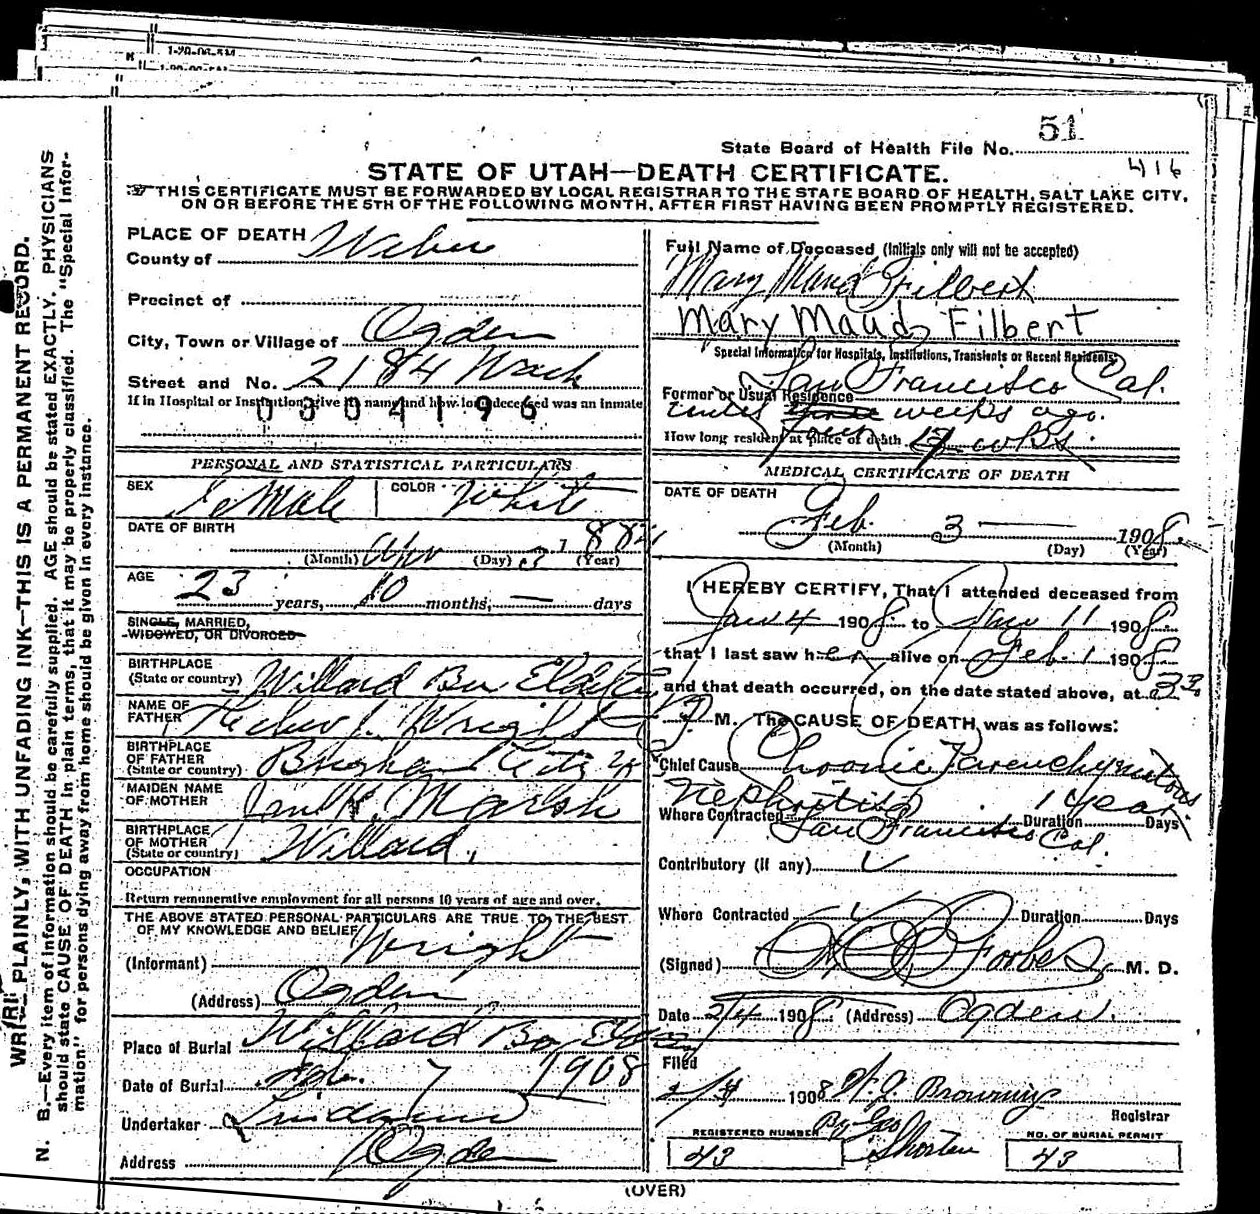 1-20-06-5M
51
State Board of Health File No.
416
STATE OF UTAH—DEATH CERTIFICATE.
THIS CERTIFICATE MUST BE FORWARDED BY LOCAL REGISTRAR TO THE STATE BOARD OF HEALTH, SALT LAKE CITY,
ON OR BEFORE THE 5TH OF THE FOLLOWING MONTH, AFTER FIRST HAVING BEEN PROMPTLY REGISTERED.
WRITE PLAINLY, WITH UNFADING INK—THIS IS A PERMANENT RECORD.
N. B.—Every item of information should be carefully supplied. AGE should be stated EXACTLY. PHYSICIANS
should state CAUSE OF DEATH in plain terms, that it may be properly classified. The "Special Infor-
mation" for persons dying away from home should be given in every instance.
PLACE OF DEATH
County of Weber
Precinct of
City, Town or Village of Ogden
Street and No. 2184 Wash
If in Hospital or Institution give its name and how long deceased was an inmate
0304196
PERSONAL AND STATISTICAL PARTICULARS
SEX Female COLOR White
DATE OF BIRTH
(Month) Apr (Day) 3 188 (Year)
AGE 23 years, 10 months, — days
SINGLE, MARRIED,
WIDOWED, OR DIVORCED
BIRTHPLACE
(State or country) Willard Box Elder
NAME OF
FATHER J. Wright
BIRTHPLACE
OF FATHER
(State or country) Brigham City
MAIDEN NAME
OF MOTHER Marsh
BIRTHPLACE
OF MOTHER
(State or country) Willard,
OCCUPATION
Return remunerative employment for all persons 10 years of age and over.
THE ABOVE STATED PERSONAL PARTICULARS ARE TRUE TO THE BEST
OF MY KNOWLEDGE AND BELIEF
(Informant) Wright
(Address) Ogden
Place of Burial Willard Box Elder
Date of Burial Feb. 7 1908
Undertaker
Address Ogden
Full Name of Deceased (Initials only will not be accepted)
Mary Maud Filbert
Mary Maud Filbert
Special Information for Hospitals, Institutions, Transients or Recent Residents:
San Francisco Cal.
Former or Usual Residence
until three weeks ago.
four
How long resident at place of death wks.
MEDICAL CERTIFICATE OF DEATH
DATE OF DEATH
Feb. 3 — 1908
(Month) (Day) (Year)
I HEREBY CERTIFY, That I attended deceased from
Jan 4 1908 to Jan 11 1908
that I last saw her alive on Feb. 1 1908
and that death occurred, on the date stated above, at 3 30
P. M. The CAUSE OF DEATH was as follows:
Chief Cause Chronic Parenchymatous
Nephritis 1 year
Where Contracted San Francisco Cal. Duration Days
Contributory (if any)
Where Contracted Duration Days
(Signed) Forbes M. D.
Date 2/4 1908 (Address) Ogden.
Filed
2/4 1908 Browning
Registrar
By Geo Shorten
REGISTERED NUMBER
43
NO. OF BURIAL PERMIT
43
(OVER)